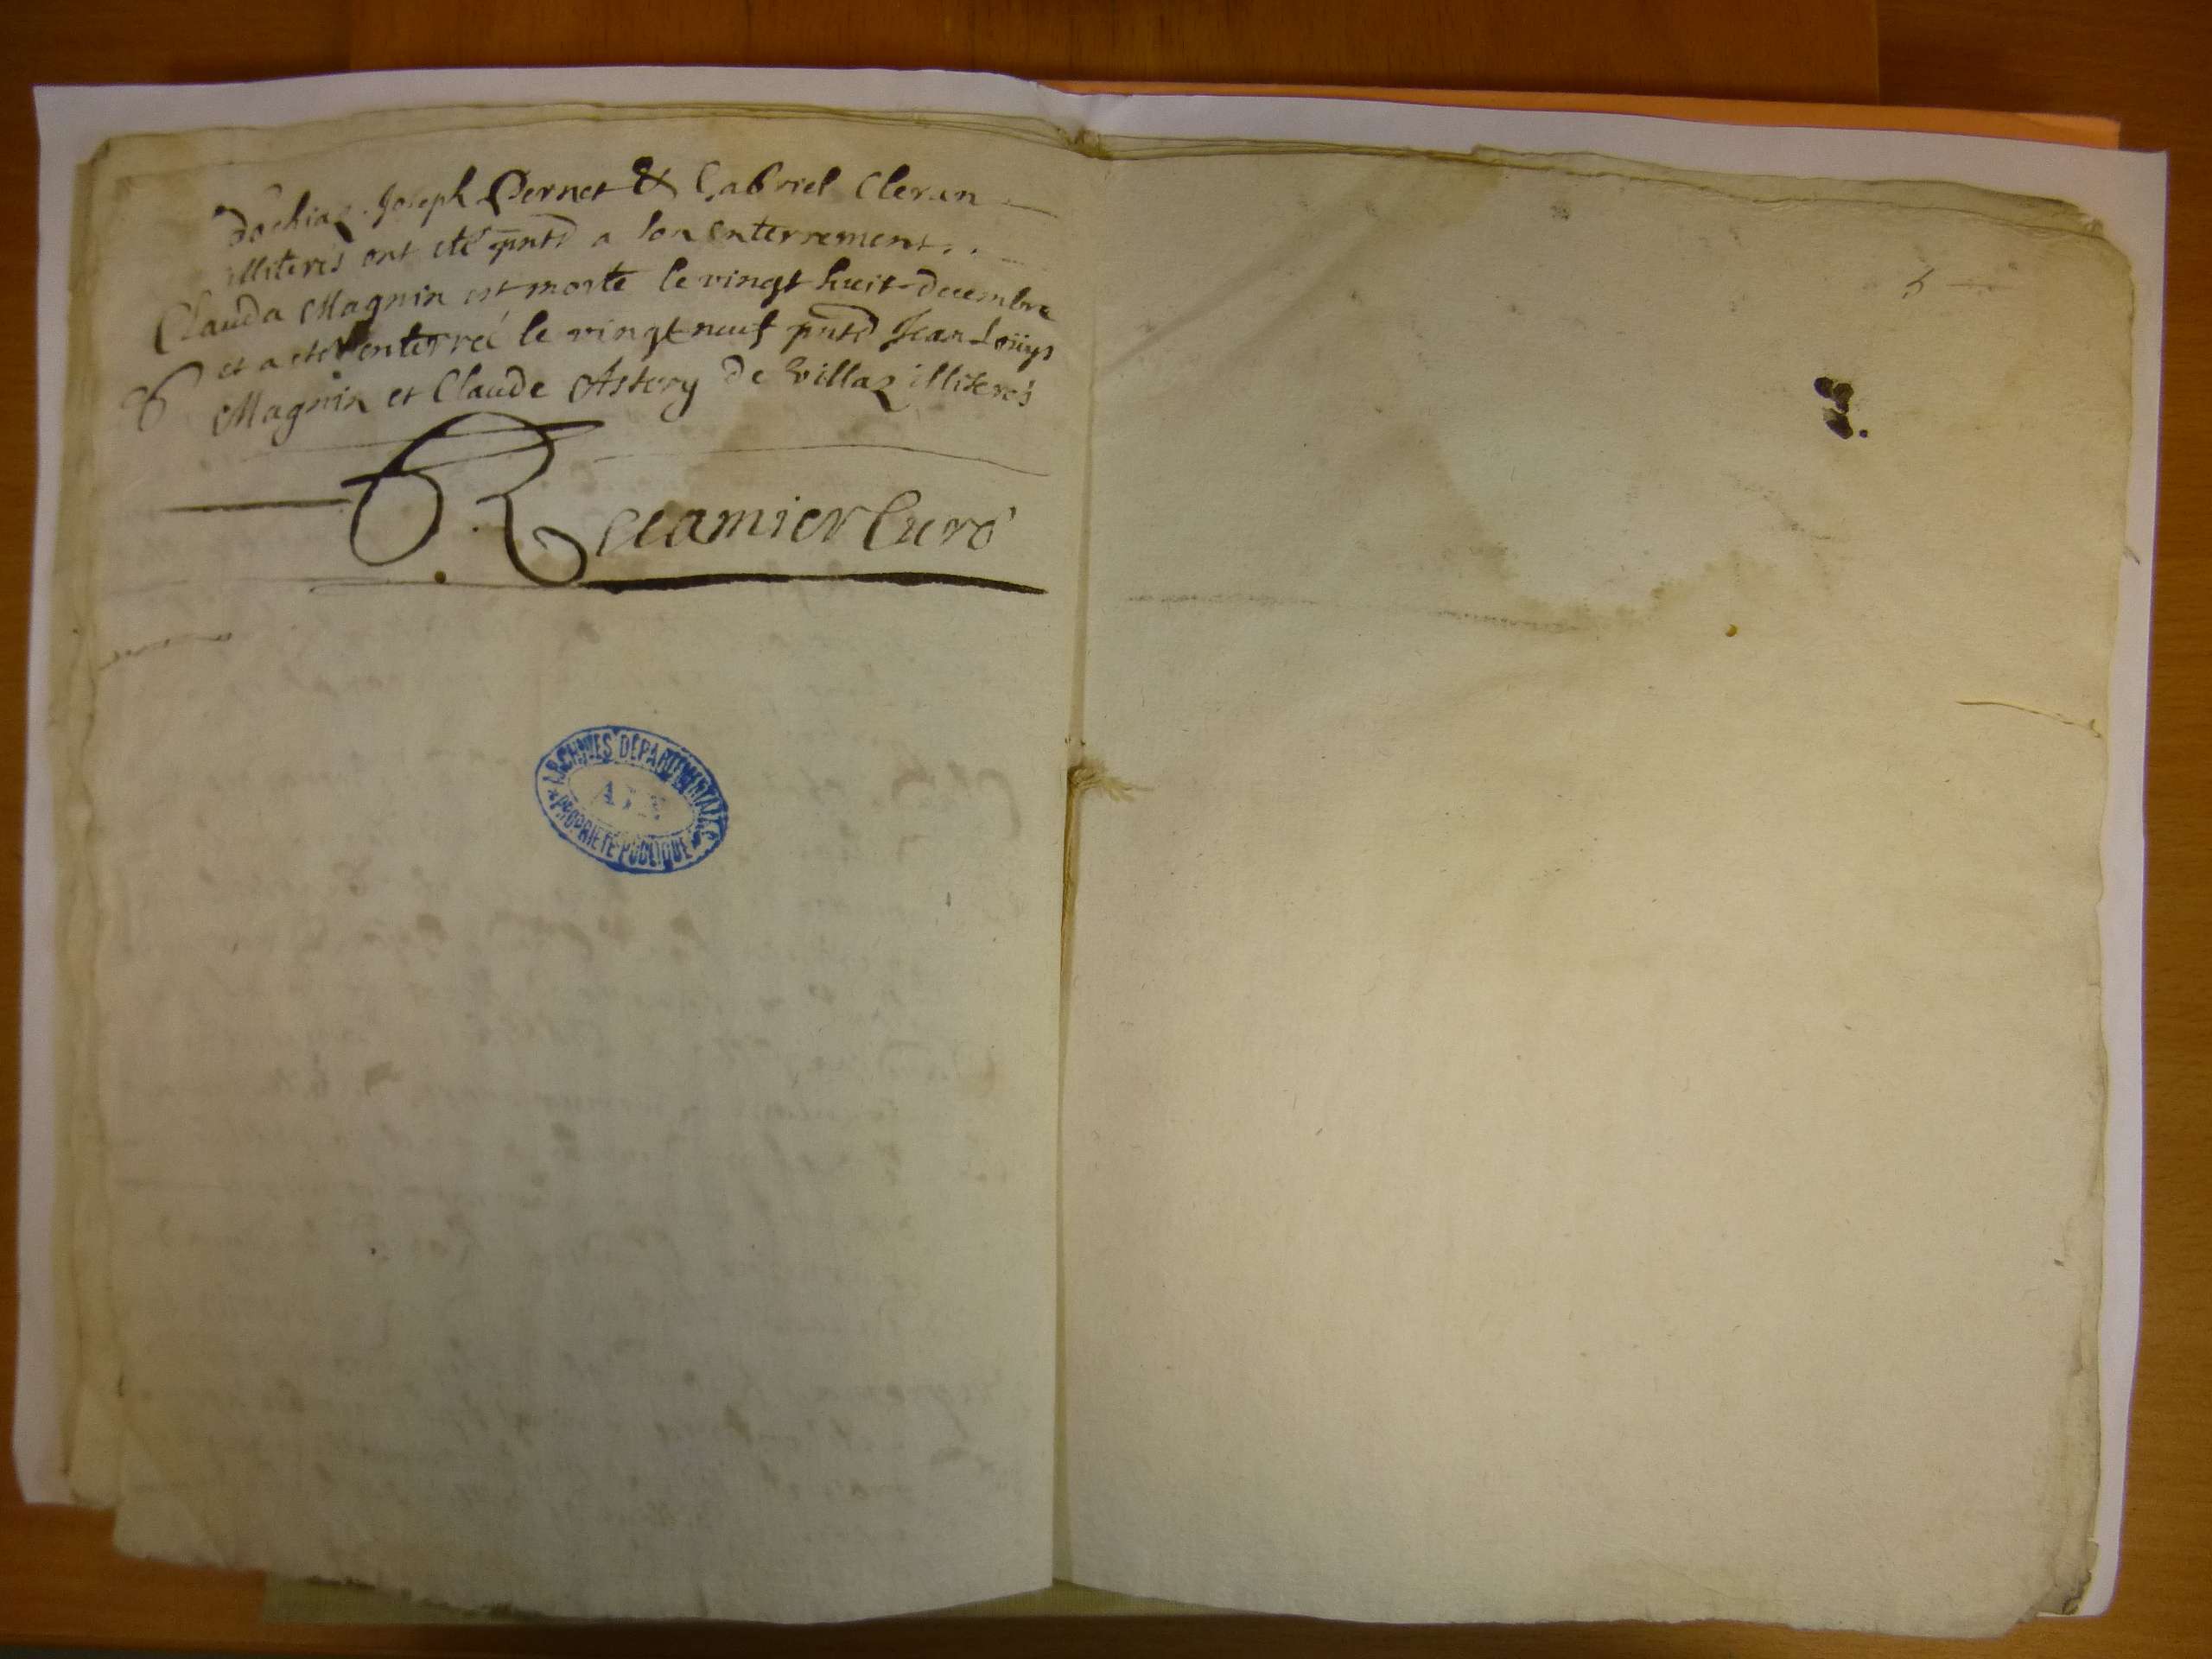 dochiaz. Joseph Pernet & Gabriel Cleran
illiterés ont eté pnts a son enterrement..
Clauda Magnin est morte le vingt huit decembre
et a eté enterreé le vingt neuf pnts Jean Loüys
Magnin et Claude Astery de Villaz illiterés
Recamier Curé
ARCHIVES DÉPARTEMENTALES
AIN
PROPRIÉTÉ PUBLIQUE